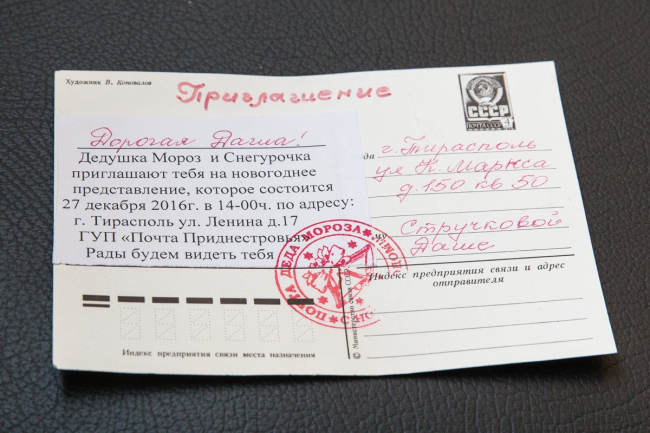 Художник В. Коновалов
Приглашение
СССР
4
Дорогая Даша!
Дедушка Мороз и Снегурочка
приглашают тебя на новогоднее
представление, которое состоится
27 декабря 2016г. в 14-00ч. по адресу:
г. Тирасполь ул. Ленина д.17
ГУП «Почта Приднестровья»
Рады будем видеть тебя
да
г. Тирасполь
ул К. Маркса
д. 150 кв 50
Стручковой
Даше
ПОЧТА ДЕДА МОРОЗА
Индекс предприятия связи и адрес
отправителя
Индекс предприятия связи места назначения
© Министерство связи СССР